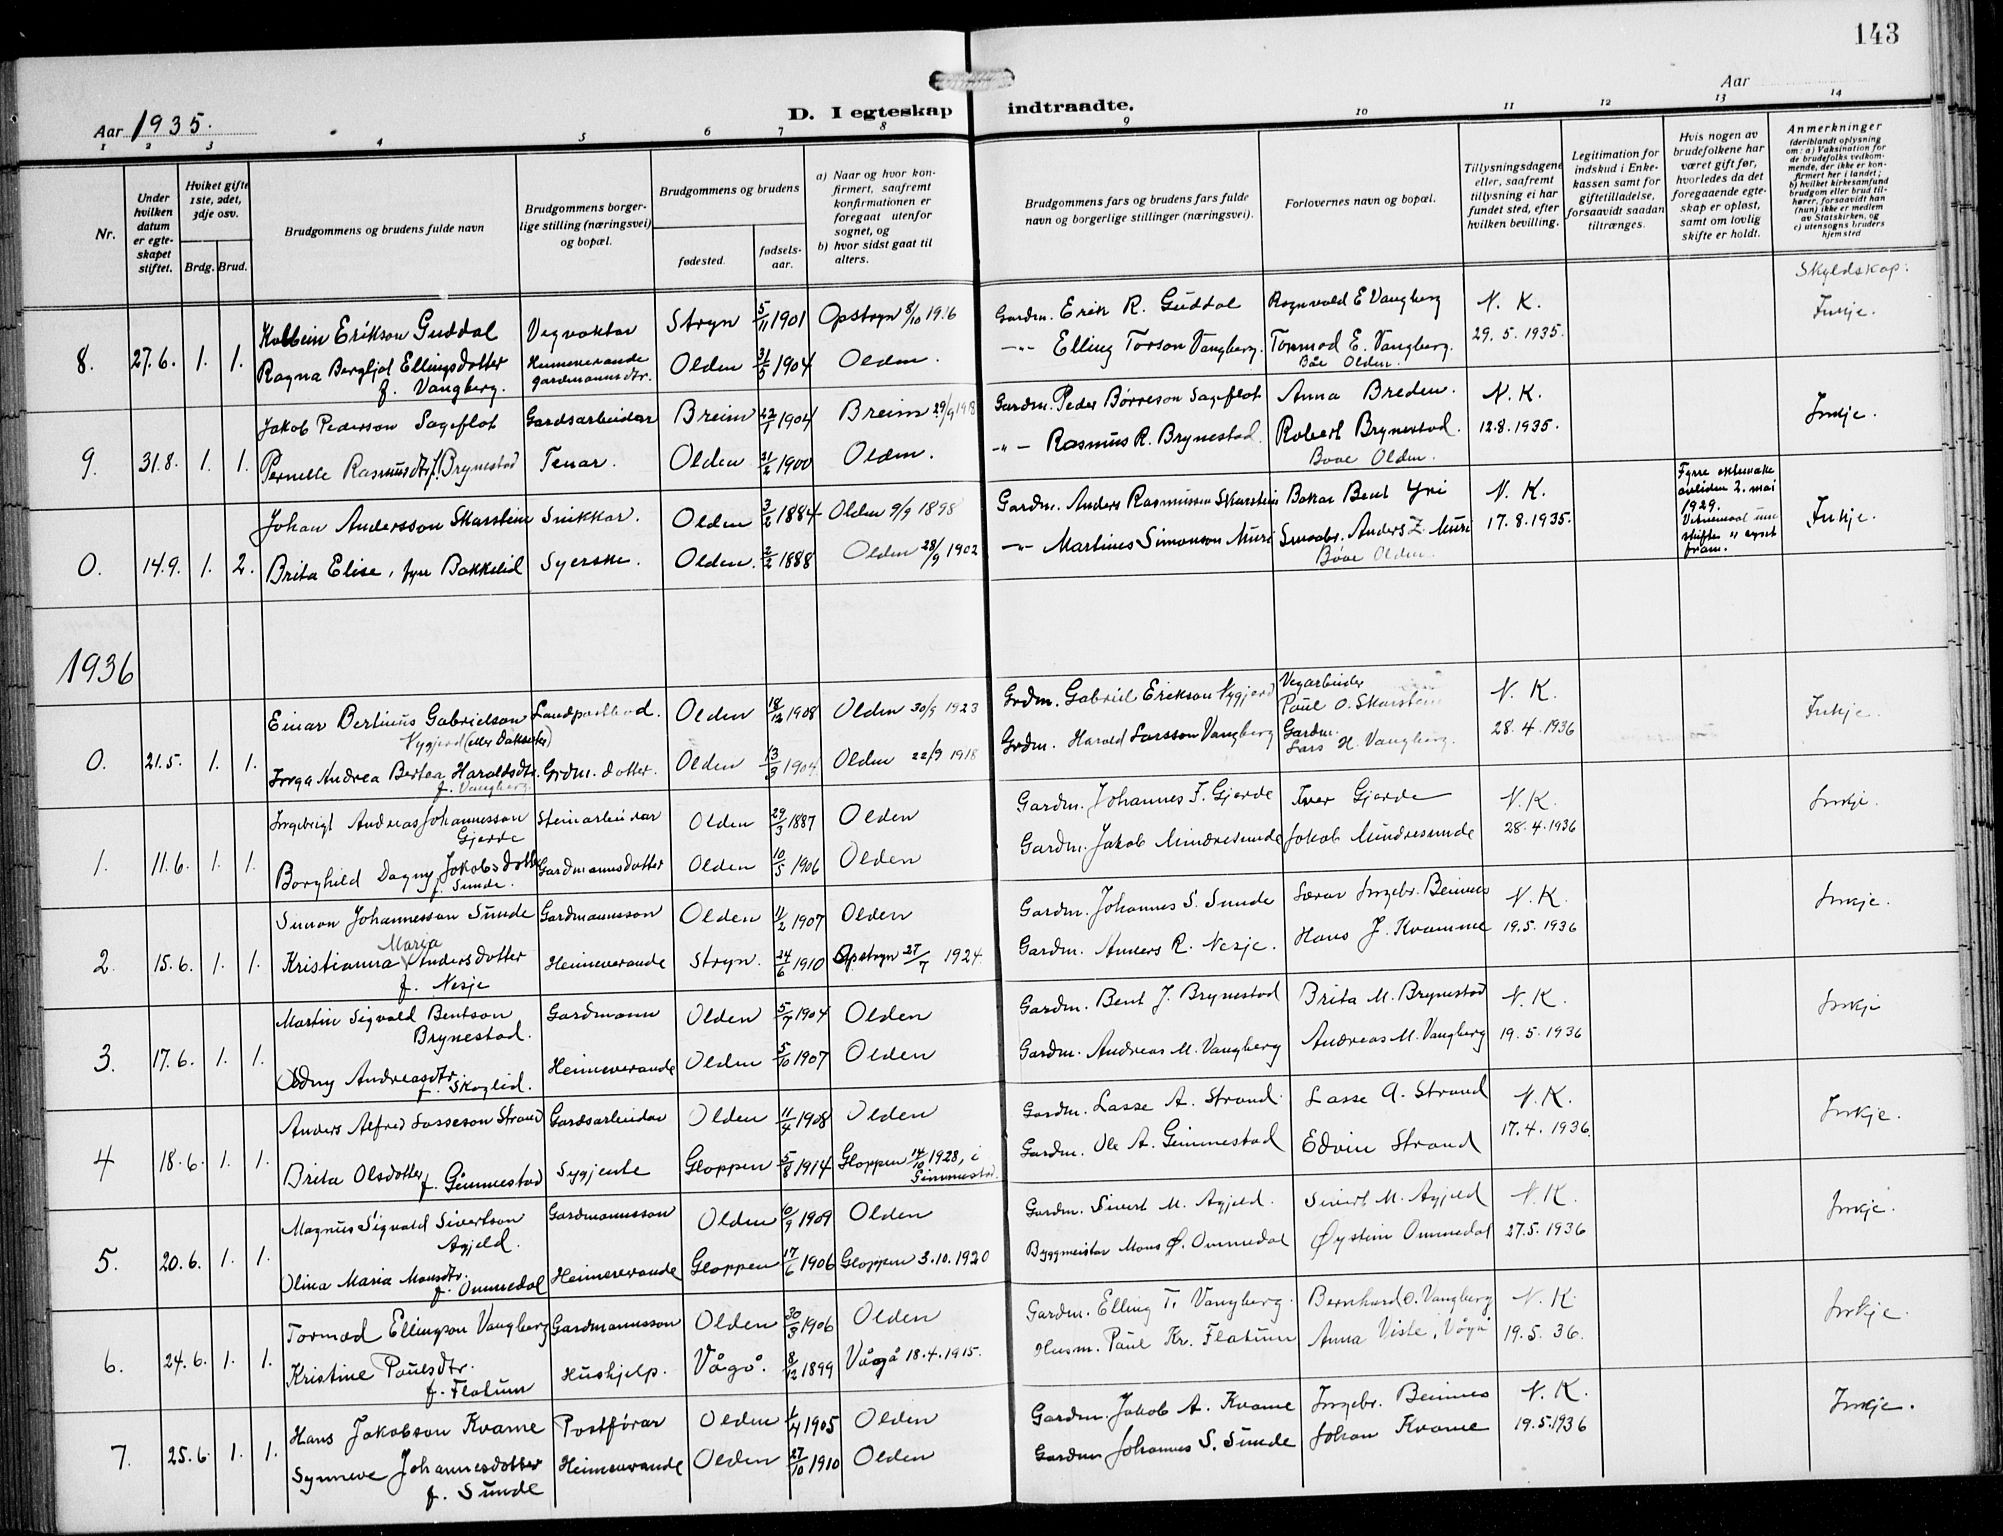 143
Aar 1935.
D. I egteskap indtraadte.
Aar
1 2 3 4 5 6 7 8 9 10 11 12 13 14
Nr.
Under hvilken datum er egteskapet stiftet.
Hviket gifte 1ste, 2det, 3dje osv.
Brdg. Brud.
Brudgommens og brudens fulde navn
Brudgommens borgerlige stilling (næringsvei) og bopæl.
Brudgommens og brudens
fødested.
fødselsaar.
a) Naar og hvor konfirmert, saafremt konfirmationen er foregaat utenfor sognet, og
b) hvor sidst gaat til alters.
Brudgommens fars og brudens fars fulde navn og borgerlige stillinger (næringsvei).
Forlovernes navn og bopæl.
Tillysningsdagene eller, saafremt tillysning ei har fundet sted, efter hvilken bevilling.
Legitimation for indskud i Enkekassen samt for giftetilladelse, forsaavidt saadan tiltrænges.
Hvis nogen av brudefolkene har været gift før, hvorledes da det foregaaende egteskap er opløst, samt om lovlig skifte er holdt.
Anmerkninger (deriblandt oplysning om: a) Vaksination for de brudefolks vedkommende, der ikke er konfirmert her i landet; b) hvilket kirkesamfund brudgom eller brud tilhører, forsaavidt han (hun) ikke er medlem av Statskirken, og c) utensogns bruders hjemsted
Skyldskap:
Kolbein Erikson Guddal Vegvaktar Stryn 5/11 1901 Opstryn 8/10 1916 Gardm. Erik R. Guddal Ragnvald E Vangberg N. K. Inkje.
8. 27.6. 1. 1. Ragna Bergljot Ellingsdotter Heimeverande gardmannsdtr. Olden 31/5 1904 Olden. -"- Elling Torson Vangberg. Tormod E. Vangberg. 29. 5. 1935.
f. Vangberg. Båe Olden.
Jakob Pederson Sageflot Gardsarbeidar Breim 22/1 1904 Breim 29/9 1918 Gardm. Peder Børreson Sageflot Anna Breden. N. K. Inkje.
9. 31.8. 1. 1. Pernelle Rasmusdtr f. Brynestad Tenar. Olden 21/2 1900 Olden. -"- Rasmus R. Brynestad. Robert Brynestad. 12.8.1935.
Bove Olden.
Johan Andersson Skarstein Snikkar. Olden 3/2 1884 Olden 9/9 1898 Gardm. Anders Rasmussen Skarstein Bakar Bent Yri N. K. Fyrre ektemake avliden 2. mai 1929. Inkje.
0. 14.9. 1. 2. Brita Elise, fyrr Bakkelid Syerske. Olden. 2/2 1888 Olden 28/9 1902 -"- Martinus Simonson Muri Smaabr. Anders Z. Muri 17.8.1935.
Bøve Olden. skifte er synt fram.
1936
Einar Bertinus Gabrielson Landpostbod. Olden 18/12 1908 Olden 30/9 1923 Grdm. Gabriel Erikson Nygjerd Vegarbeider Paul O. Skarstein N. K. Inkje.
Nygjerd
0. 21.5. 1. 1. Inga Andrea Bertea Haraldsdtr. Grdm. dotter. Olden 13/3 1904 Olden 22/9 1918 Grdm. Harald Larsson Vangberg Gardm. Lars H. Vangberg. 28. 4. 1936
f. Vangberg.
Ingebrigt Andreas Johannesson Steinarbeidar Olden 29/3 1887 Olden Gardm. Johannes F. Gjerde Iver Gjerde N. K. Inkje.
Gjerde
1. 11.6. 1. 1. Borghild Dagny Jakobsdotter Gardmannsdotter Olden 10/5 1906 Olden Gardm. Jakob Mindresunde Jakob Mindresunde 28.4.1936
f. Sunde.
Simon Johannesson Sunde Gardmannsson Olden 11/2 1907 Olden Gardm. Johannes S. Sunde Lærar Ingebr. Beinnes N. K. Inkje.
Maria
2. 15.6. 1. 1. Kristianna Andersdotter Heimeverande Stryn. 24/6 1910 Opstryn 27/7 1924 Gardm. Anders R. Nesje. Hans J. Kvamme 19.5.1936
f. Nesje
Martin Sigvald Bentson Gardmann Olden 5/7 1904 Olden Gardm. Bent J. Brynestad Brita M. Brynestad N. K. Inkje
Brynestad.
3. 17.6. 1. 1. Oddny Andreasdtr. Heimeverande Olden 5/10 1907 Olden Gardm. Andreas M. Vangberg Andreas M. Vangberg 19. 5. 1936
f. Skoglid.
Anders Alfred Lasseson Strand Gardsarbeidar Olden 11/4 1908 Olden Gardm. Lasse A. Strand. Lasse A. Strand N. K. Inkje.
4 18.6. 1. 1. Brita Olsdotter f. Gimmestad Sygjente Gloppen 5/8 1914 Gloppen 14/10 1928, i Gimmestad. Gardm. Ole A. Gimmestad Edvin Strand 17. 4. 1936.
Magnus Sigvald Sivertson Gardmannsson Olden 10/9 1909 Olden Gardm. Sivert M. Agjeld. Sivert M. Agjeld N. K. Inkje.
Agjeld.
5. 20.6. 1. 1. Olina Maria Monsdtr. Heimeverande Gloppen 17/6 1906 Gloppen 3.10.1920 Byggmeistar Mons Ø. Ommedal Øystein Ommedal 27.5.1936
f. Ommedal
Tormod Ellingson Vangberg Gardmannsson Olden 30/3 1906 Olden Gardm. Elling T. Vangberg. Bernhard O. Vangberg N. K. Inkje.
6. 24.6. 1. 1. Kristine Paulsdtr. Hushjelp. Vågå. 8/12 1899 Vågå 18.4.1915. Husm. Paul Kr. Flatum Anna Viste, Vågå 19.5. 36.
f. Flatum
Hans Jakobson Kvame Postførar Olden 1/4 1905 Olden Gardm. Jakob A. Kvame Ingebr. Beinnes N. K. Inkje.
7. 25.6 1. 1. Synneve Johannesdotter Heimeverande Olden 27/10 1910 Olden Gardm Johannes S. Sunde Johan Kvame 19.5.1936
f. Sunde